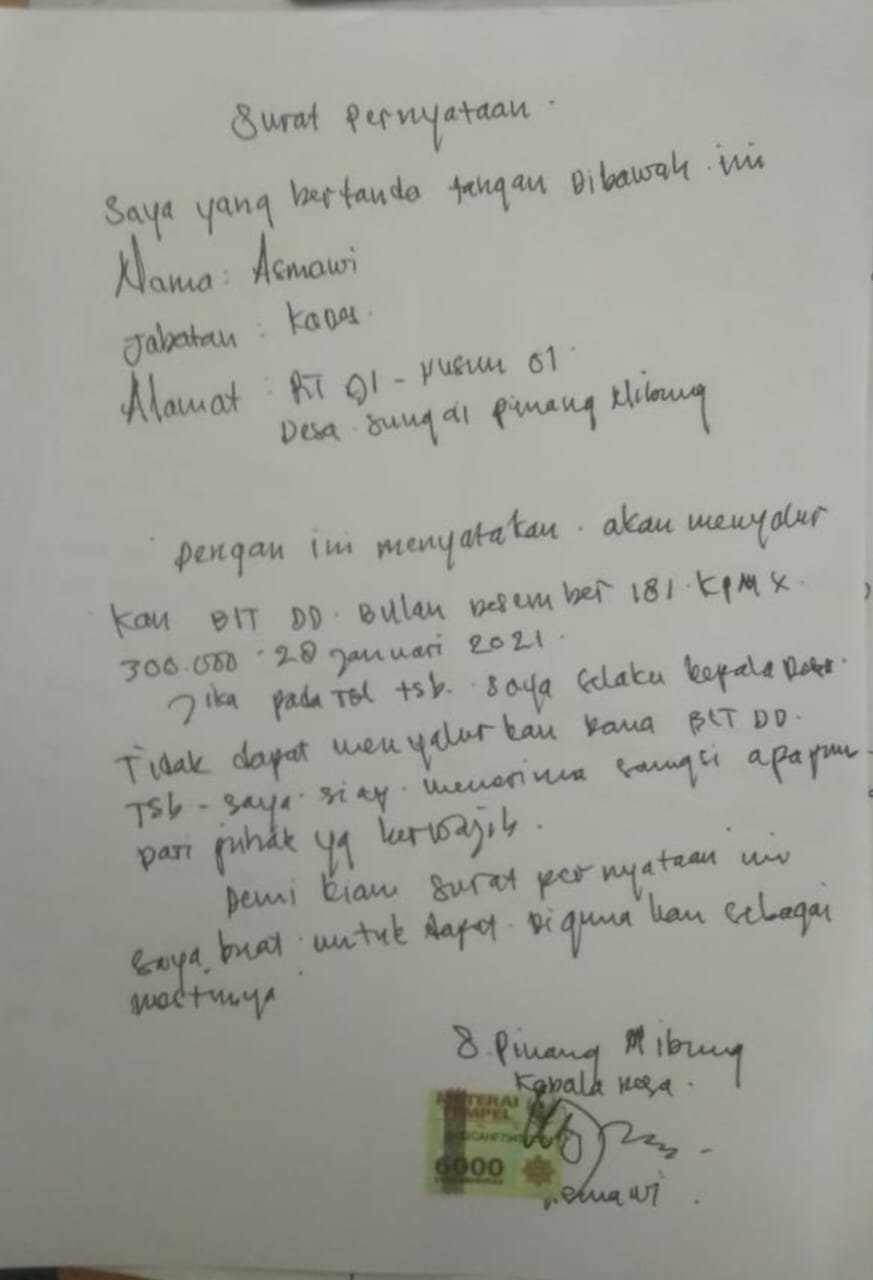 Surat Pernyataan.
Saya yang bertanda tangan Dibawah ini
Nama: Asmawi
Jabatan : Kades.
Alamat : RT 01 - Dusun 01.
Desa Sungai Pinang Nibung
Dengan ini menyatakan. akan menyalur
kan BLT DD. Bulan Desember 181. KPM X.
300.000 . 28 Januari 2021.
Jika pada Tgl tsb. saya selaku kepala Desa.
Tidak dapat menyalurkan Dana BLT DD.
Tsb - saya. siap. menerima sangsi apapun -
Dari pihak yg berwajib.
Demi kian surat pernyataan ini
saya buat untuk dapat. Diguna kan sebagai
mestinya
S. Pinang Nibung
Kepala Desa.
METERAI
TEMPEL
6000
Asmawi.